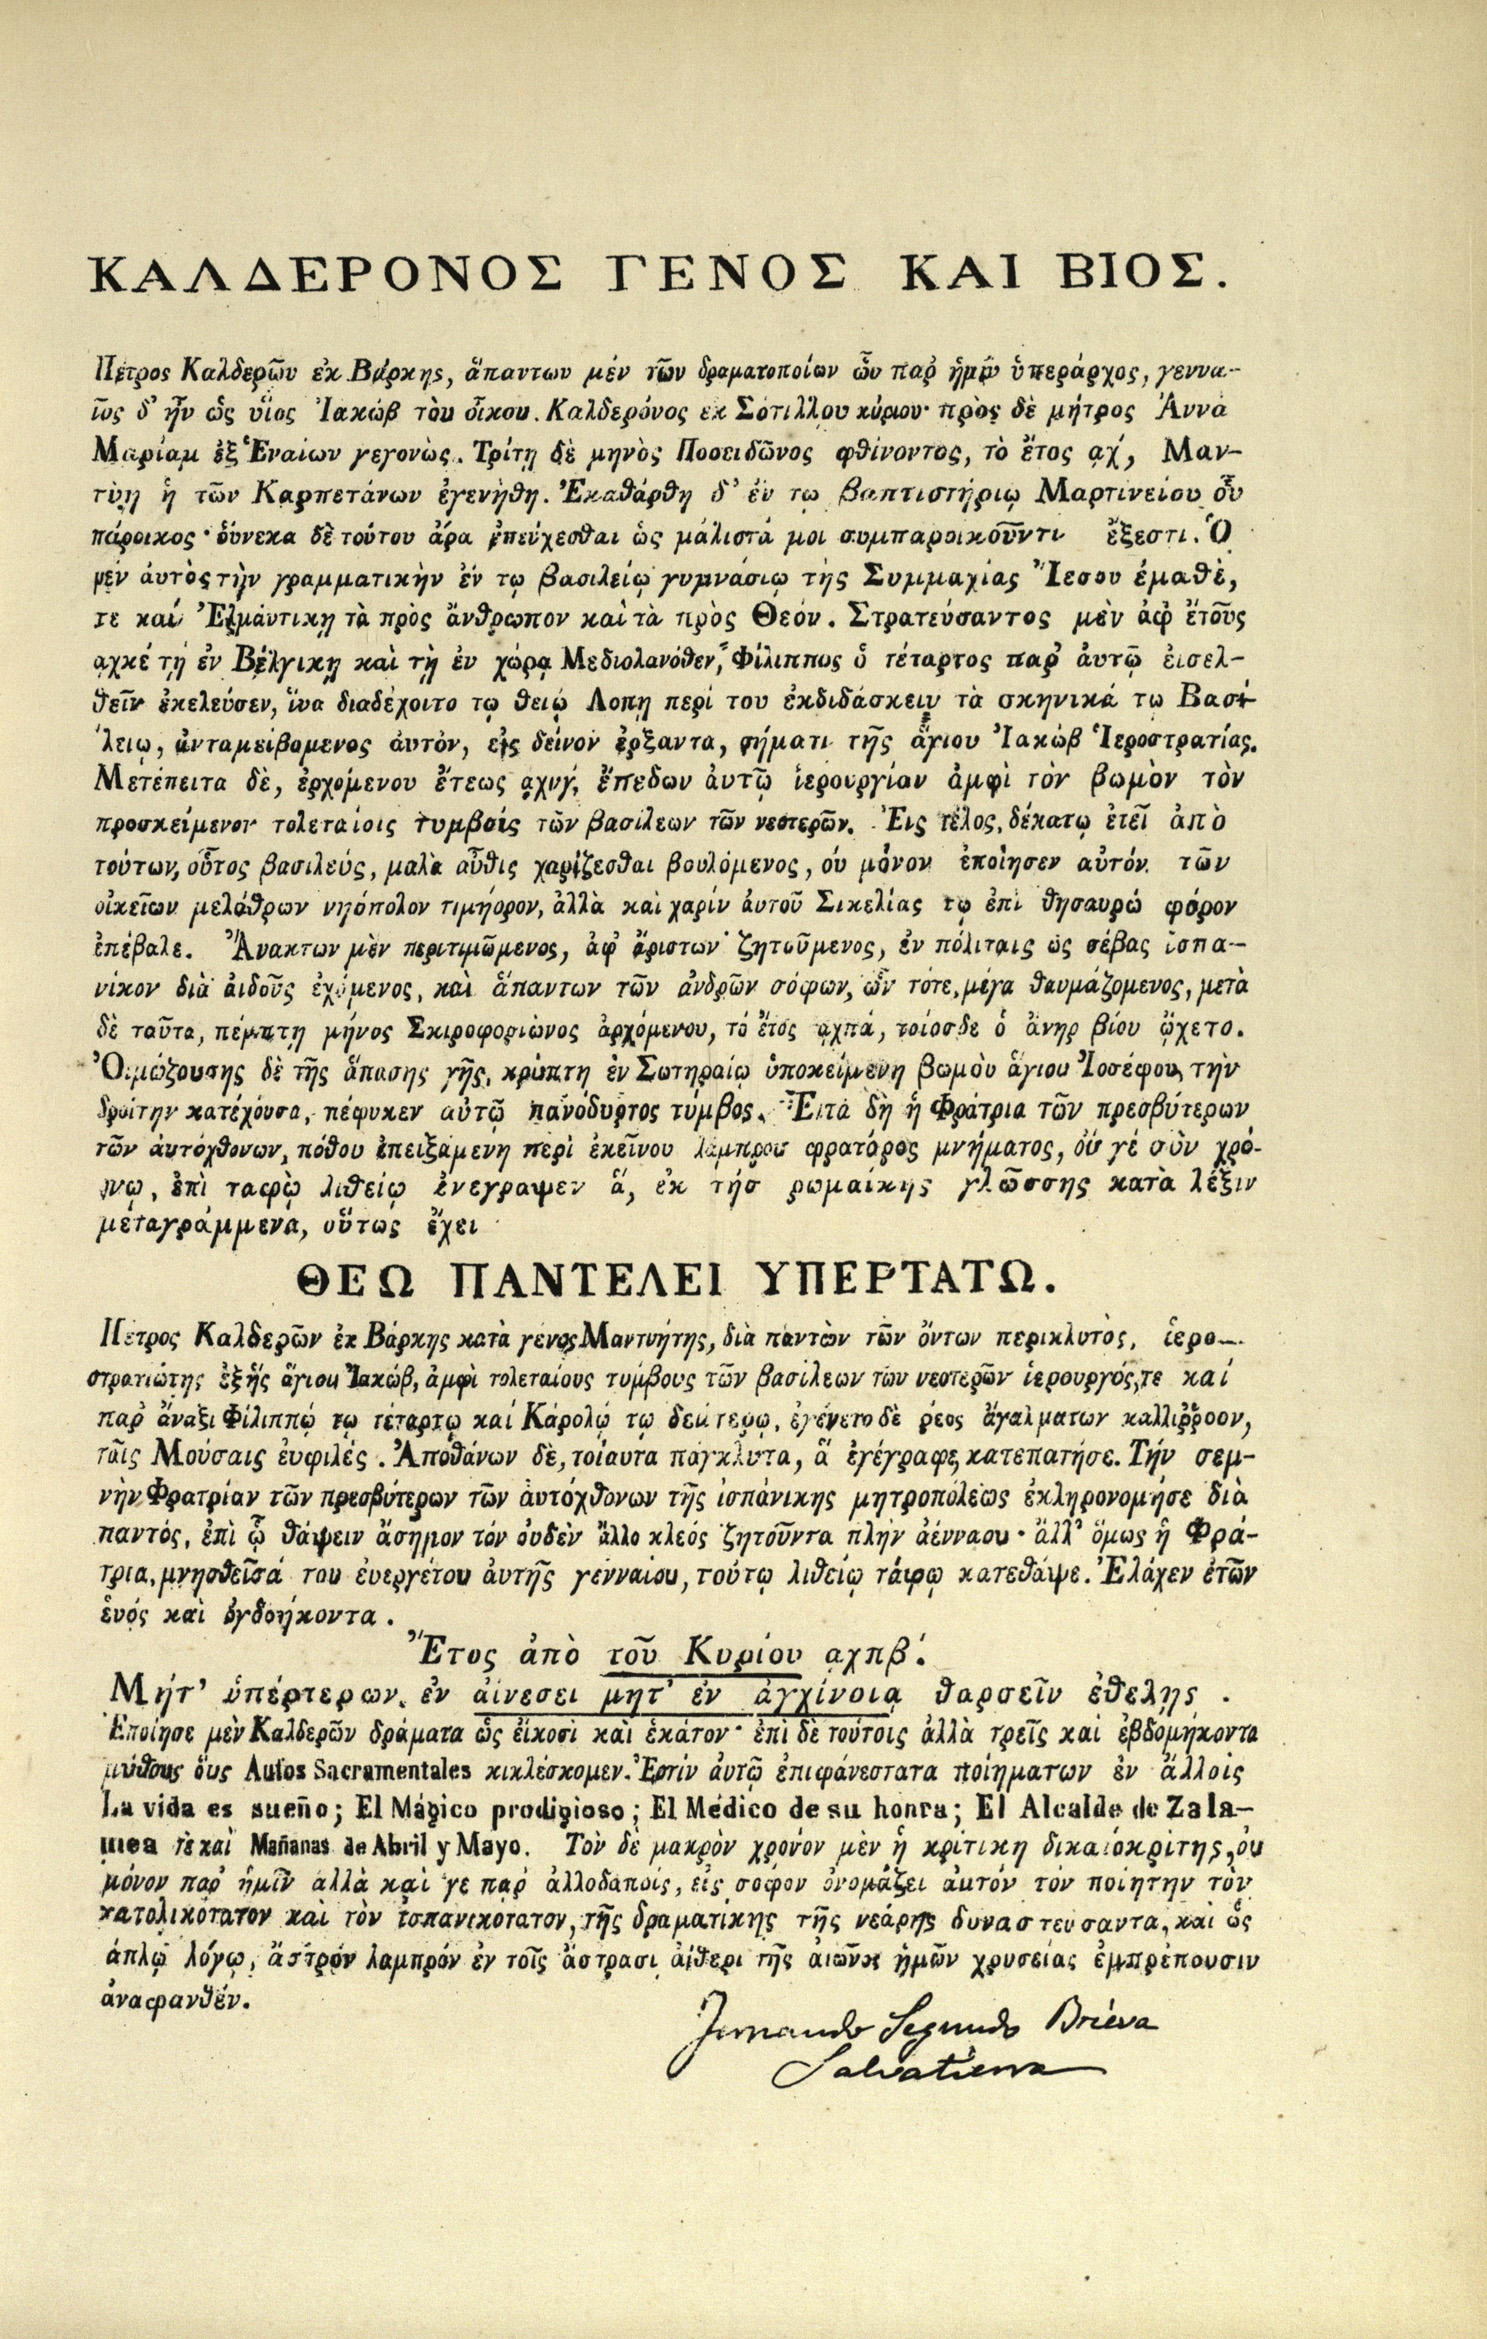 ΚΑΛΔΕΡΟΝΟΣ ΓΕΝΟΣ ΚΑΙ ΒΙΟΣ.
Πέτρος Καλδερῶν ἐκ Βάρκης, ἅπαντων μέν τῶν δραματοποίων ὧν παρ' ἡμῖν ὑπεράρχος, γεννα–
ῖος δ' ἦν ὡς ὕϊος Ἰακώβ τὸυ οἴκου. Καλδερόνος ἐκ Σότιλλου κύριου· πρὸς δὲ μήτρος Ἄννα
Μαρίαμ ἐξ Ἑναίων γεγονὼς. Τρίτῃ δὲ μηνὸς Ποσειδῶνος φθίνοντος, τὸ ἔτος αχ́, Μαν–
τύῃ ἡ τῶν Καρπετάνων ἐγενήθη. Ἐκαθάρθη δ' ἐν τῳ βαπτιστήριῳ Μαρτινείου οὗ
πάροικος· οὕνεκα δὲ τούτου ἀρα ἐπεύχεσθαι ὡς μάλιστά μοι συμπαροικοῦντι ἔξεστι. Ὁ
μέν ἀυτὸς τὴν γραμματικὴν ἐν τῳ βασιλείῳ γυμνάσιῳ τῆς Συμμαχίας Ἴεσου ἐμαθὲ,
τε καί Ἐλμάντικῃ τὰ πρὸς ἄνθρωπον καὶ τὰ πρὸς Θεόν. Στρατεύσαντος μὲν ἀφ' ἔτοῦς
αχκέ τῇ ἐν Βέλγικῃ καὶ τῇ ἐν χώρᾳ Μεδιολανόθεν, Φίλιππος ὁ τέταρτος παρ' ἀυτῷ ἐισελ–
θεῖν ἐκελεύσεν, ἵνα διαδέχοιτο τῳ θειῷ Λοπῃ περί του ἐκδιδάσκειν τὰ σκηνικά τῳ Βασι–
λειῳ, ἀνταμειβομενος ἀυτὸν, εἰς δείνον ἐρξαντα, σήματι τῆς ἅγιου Ἰακώβ Ἱεροστρατίας.
Μετέπειτα δὲ, ἐρχόμενου ἔτεως αχνγ́, ἔπεδων ἀυτῷ ἱερουργίαν ἀμφὶ τὸν βωμὸν τὸν
προσκείμενον τολεταίοις τυμβοίς τῶν βασίλεων τῶν νεοτερῶν. Ἐις τέλος, δέκατῳ ἐτεῖ ἀπὸ
τούτων, οὗτος βασιλεύς, μαλὰ αὖθις χαρίζεσθαι βουλόμενος, ού μόνον ἐποίησεν αὐτόν τῶν
οἰκεῖων μελάθρων νηόπολον τιμήορον, ἀλλὰ καὶ χαρίν ἀυτοῦ Σικελίας τῳ ἐπὶ θησαυρῷ φόρον
ἐπέβαλε. Ἀνακτων μὲν περιτιμῶμενος, ἀφ' ἄριστων ζητοῦμενος, ἐν πόλιταις ὡς σέβας ἱσπα–
νίκον διὰ ἀιδοῦς ἐχόμενος, καὶ ἅπαντων τῶν ἀνδρῶν σόφων, ὧν τότε, μέγα θαυμάζομενος, μετὰ
δὲ ταῦτα, πέμπτῃ μήνος Σκιροφοριὼνος ἀρχόμενου, τό ἔτος αχπά, τοίοσδε ὁ ἀνηρ βίου ᾤχετο.
Ὀιμώζουσης δὲ τῆς ἅπασης γῆς, κρύπτη ἐν Σωτηραίῳ ὑποκείμενη βωμὸυ ἅγιου Ἰοσέφου, τὴν
δροίτην κατέχουσα, πέφυκεν αὐτῷ πανόδυρτος τύμβος. Ἔιτα δὴ ἡ Φράτρια τῶν πρεσβύτερων
τῶν ἀυτόχθονων, πόθου ἐπειξάμενη περὶ ἐκεῖνου λαμπροῦ φρατόρος μνήματος, οὐ γέ σὺν χρό–
νῳ, ἐπὶ ταφῷ λιθείῳ ἐνεγραψεν ἅ, ἐκ τήσ ρωμαίκης γλῶσσης κατὰ λέξιν
μεταγράμμενα, οὕτως ἔχει
ΘΕΩ ΠΑΝΤΕΛΕΙ ΥΠΕΡΤΑΤΩ.
Πέτρος Καλδερῶν ἐκ Βάρκης κατὰ γένος Μαντυήτης, διὰ πάντὼν τῶν ὄντων περικλυτὸς, ἱερο–
στρατιώτης ἐξῆς ἅγιου Ἰακώβ, ἀμφὶ τολεταίους τυμβους τῶν βασίλεων τῶν νεοτερῶν ἱερουργός, τε καί
παρ' ἄναξι Φίλιππῳ τῳ τέταρτῳ καί Κάρολῳ τῳ δεύτερῳ, ἐγένετο δὲ ῥέος ἀγαλματων καλλιῤῥοον,
ταῖς Μούσαις ἐυφιλές. Ἀποθάνων δὲ, τοίαυτα παγκλυτα, ἅ ἐγέγραφε, κατεπατήσε. Τήν σεμ–
νὴν Φρατρίαν τῶν πρεσβύτερων τῶν ἀυτόχθονων τῆς ἱσπάνικης μητροπόλεως ἐκληρονομήσε διὰ
παντός, ἐπὶ ᾧ θάψειν ἄσημον τόν ὀυδὲν ἄλλο κλεός ζητοῦντα πλὴν ἀένναου· ἄλλ' ὅμως ἡ Φρά–
τρια, μνησθεῖσά του ἐυεργέτου ἀυτῆς γενναίου, τούτῳ λιθείῳ τάφῳ κατεθάψε. Ἐλάχεν ἐτῶν
ἑνός καὶ ὀγδοήκοντα.
Ἔτος ἀπὸ τοῦ Κυρίου αχπβ́.
Μήτ' ὑπέρτερων, ἐν ἀίνεσει μητ' ἐν ἀγχίνοιᾳ θαρσεῖν ἐθελῃς.
Ἐποίησε μὲν Καλδερῶν δράματα ὡς ἔικοσι καὶ ἑκάτον· ἐπὶ δὲ τοῦτοις ἀλλὰ τρεῖς καὶ ἑβδομήκοντα
μύθους ὅυς Autos Sacramentales κικλέσκομεν. Ἐστίν ἀυτῷ ἐπιφάνεστατα ποίηματων ἐν ἄλλοις
La vida es sueño; El Mágico prodigioso; El Médico de su honra; El Alcalde de Zala–
mea τὲ καὶ Mañanas de Abril y Mayo. Τὸν δὲ μακρὸν χρόνον μὲν ἡ κρίτικη δικαιόκρίτης, ὀυ
μόνον παρ' ἡμῖν ἀλλὰ καὶ γε παρ' ἀλλοδαποίς, εἰς σοφον ὀνομάζει ἀυτόν τόν ποίητην τὸν
κατολικότατον καὶ τὸν ἱσπανικοτατον, τῆς δραματίκης τῆς νεάρης δυναστευσαντα, καὶ ὡς
ἀπλῳ λόγῳ, ἄστρόν λαμπρόν ἐν τοῖς ἄστρασι ἀίθερι τῆς ἀιῶνος ἡμῶν χρυσείας ἐμπρέπουσιν
ἀναφανθέν.
Fernando Segundo Brieva
Salvatierra